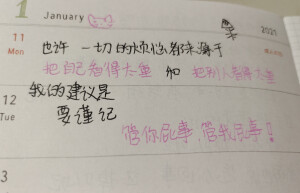 1 January
2021
11
Mon
也许 一切的烦恼都来源于
把自己看得太重 和 把别人看得太重
12
Tue
我的建议是
要谨记
管你屁事,管我屁事!
3